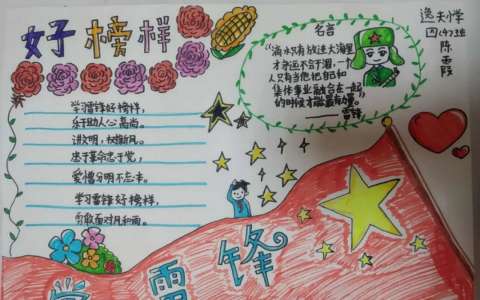 好榜样
学雷锋好榜样,
乐于助人心高尚。
讲文明,树新风。
忠于革命忠于党,
爱憎分明不忘本。
学习雷锋好榜样,
勇敢面对风和雨。
名言
"滴水只有放进大海里
才永远不会干涸,一个
人只有当他把自己和
集体事业融合在一起,
的时候才能最有力量。
——雷锋
逸夫小学
四(4)3班
学雷锋